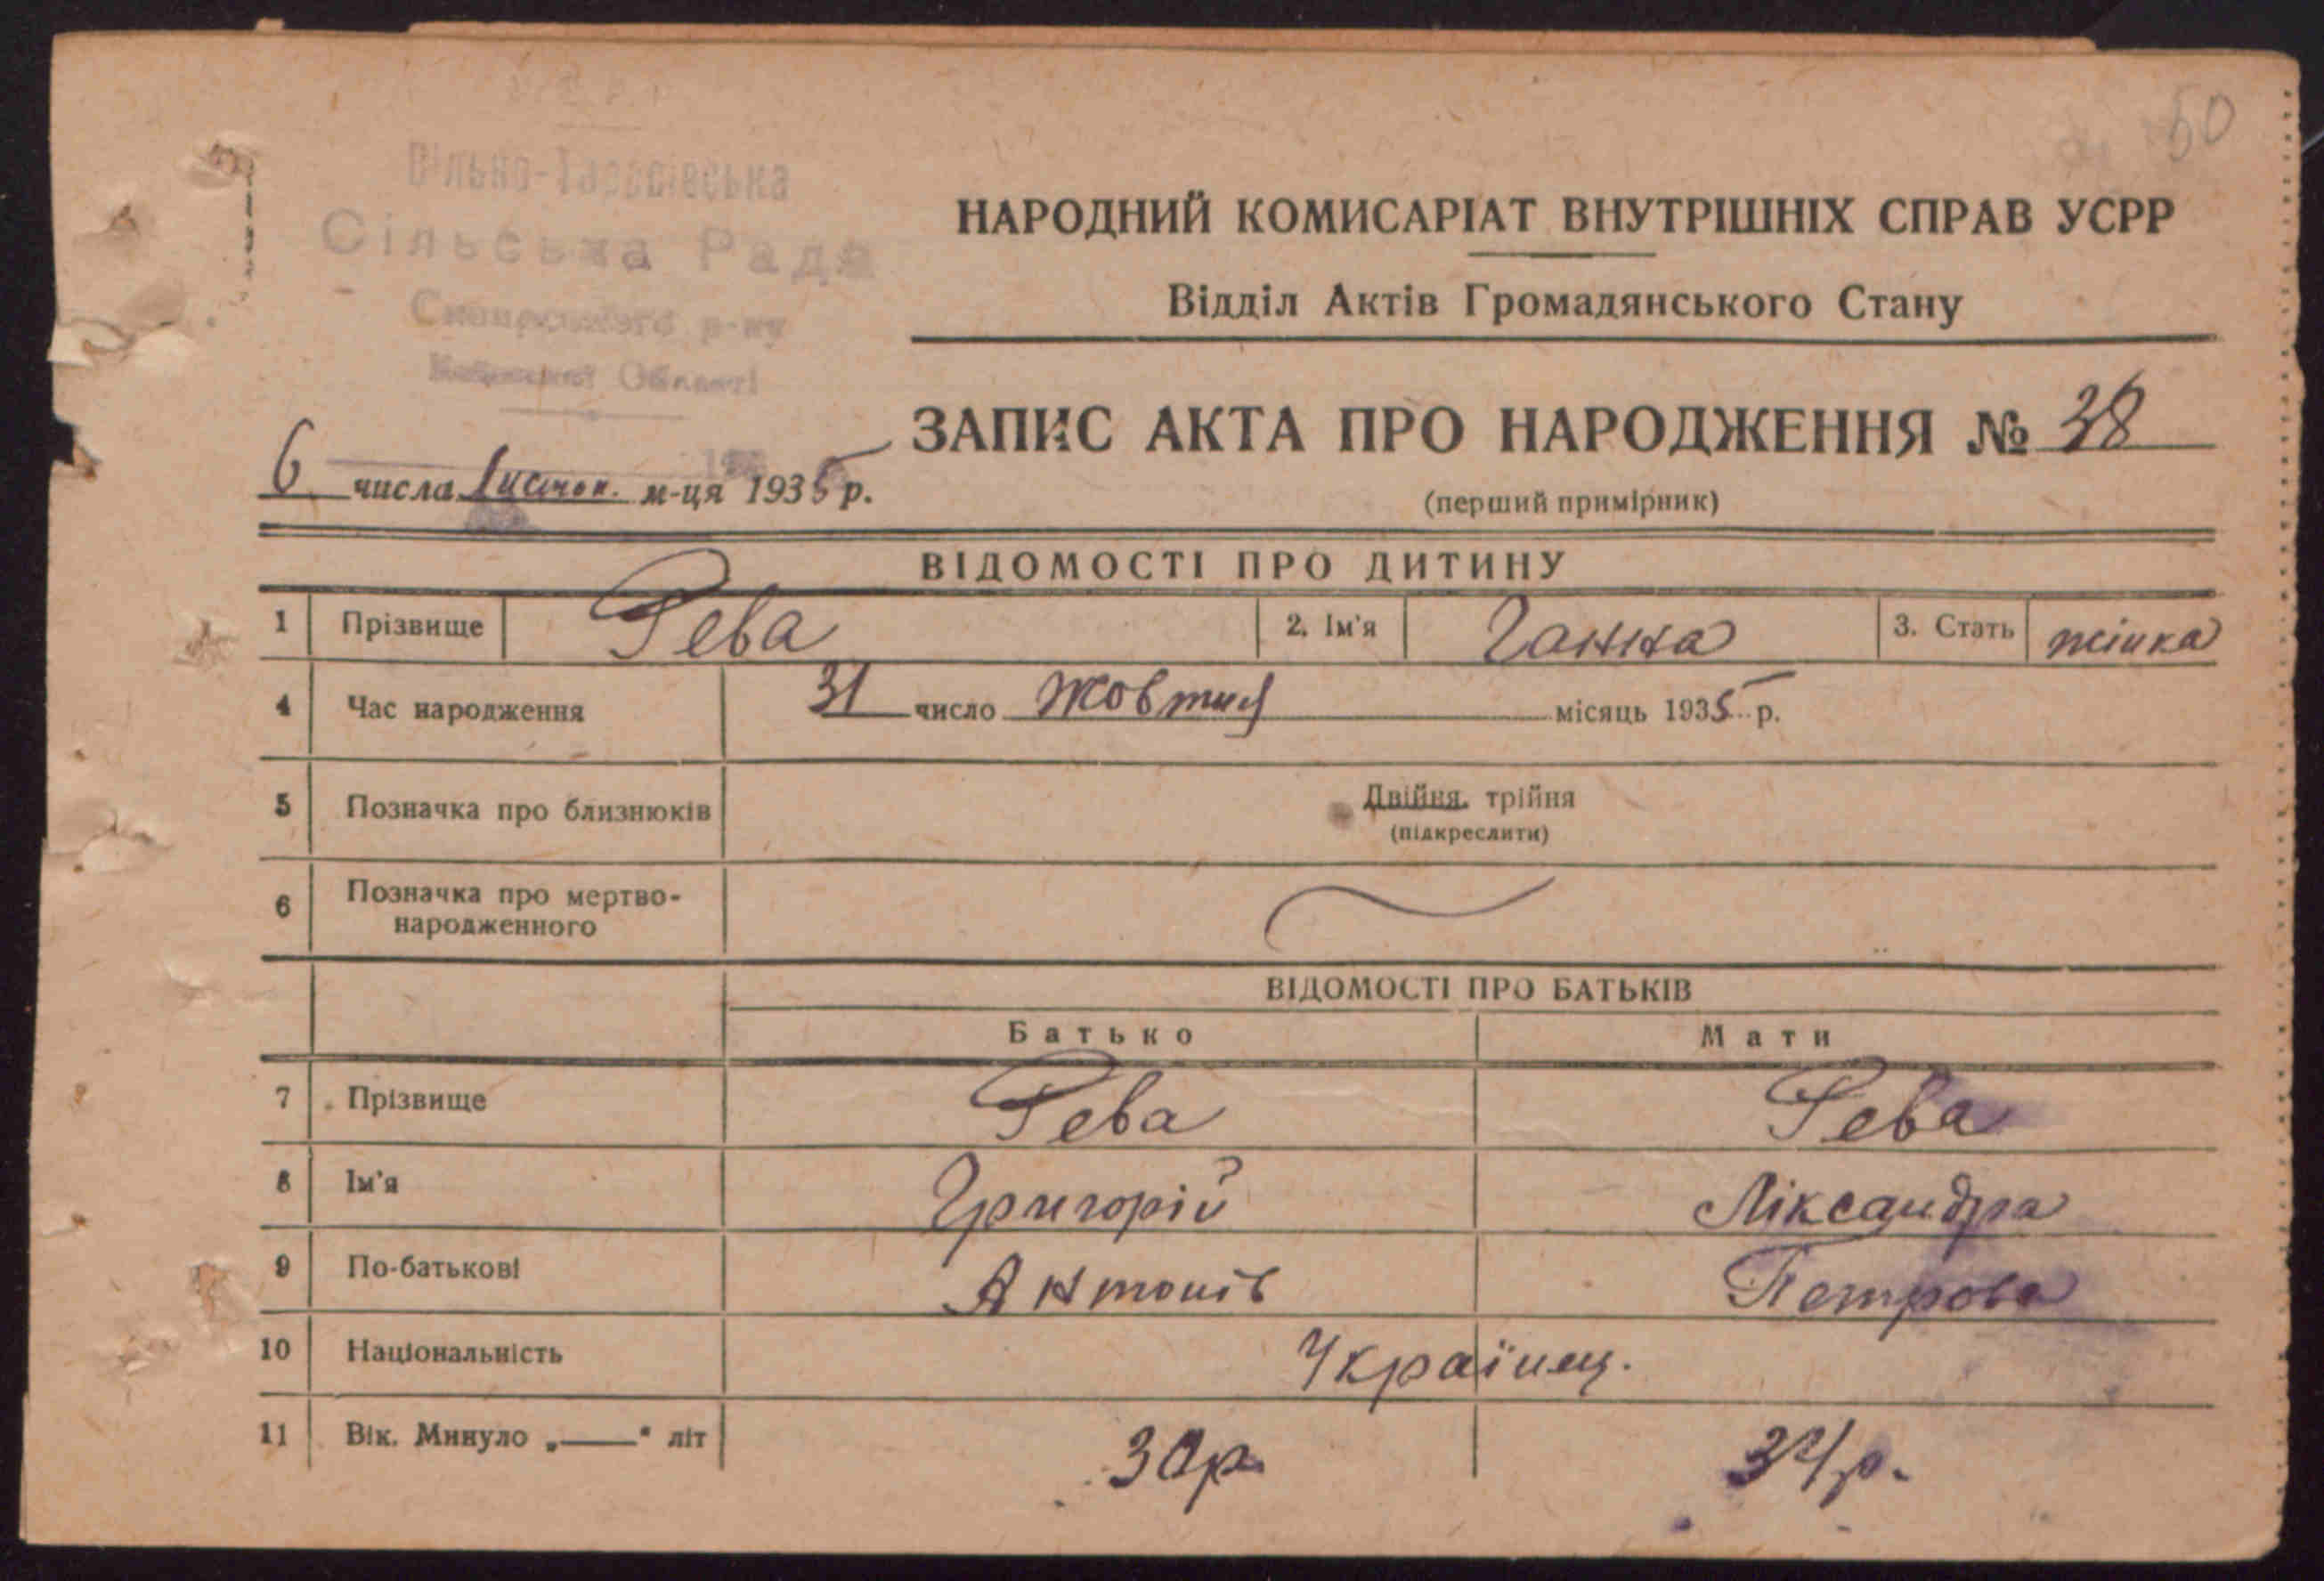 50
Вільно-Тарасівська
Сільська Рада
р-ну
Області
НАРОДНИЙ КОМИСАРІАТ ВНУТРІШНІХ СПРАВ УСРР
Відділ Актів Громадянського Стану
ЗАПИС АКТА ПРО НАРОДЖЕННЯ № 38
(перший примірник)
6 числа листоп. м-ця 1935 р.
ВІДОМОСТІ ПРО ДИТИНУ
1 Прізвище Рева 2. Ім'я Ганна 3. Стать жінка
4 Час народження 31 число Жовтня місяць 1935 р.
5 Позначка про близнюків Двійня, трійня
(підкреслити)
6 Позначка про мертво-
народженного
ВІДОМОСТІ ПРО БАТЬКІВ
Батько Мати
7 Прізвище Рева Рева
8 Ім'я Григорій Ліксандра
9 По-батькові Антонів Петрова
10 Національність Українец.
11 Вік. Минуло „—“ літ 30р. 34р.